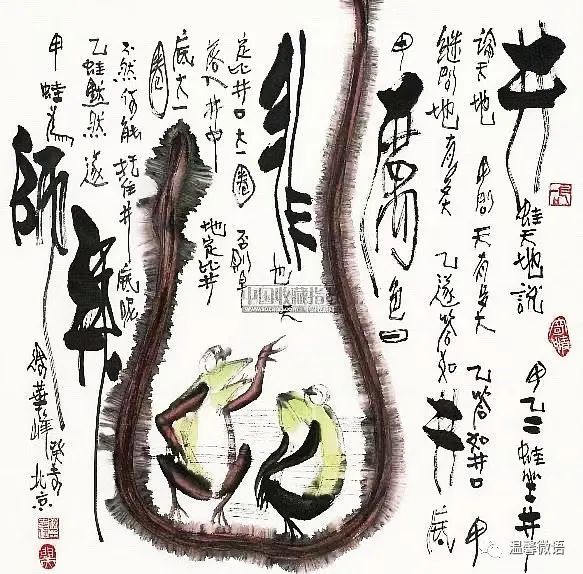 井蛙天地說
甲乙二蛙坐井
論天地 甲問天有多大 乙答如井口 甲
繼問地有多大 乙遂答如井底
甲厲色曰
非也 天
定比井口大一圈 否則早
落入井中 地定比井
底大一圈
不然何能挖井底呢
乙蛙默然遂
甲蛙為師
華峰
北京
中国收藏指
温馨微语